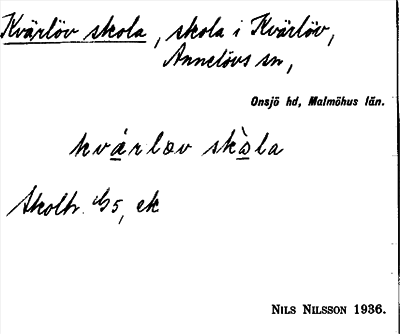 Kvärlöv skola, skola i Kvärlöv,
Annelövs sn,
Onsjö hd, Malmöhus län.
kvárlœv skɔ̀la
Skolh. 1/5, ek
NILS NILSSON 1936.